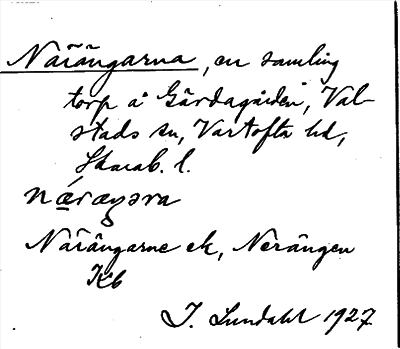 Närängarna, en samling
torp å Gärdagården, Val-
stads sn, Vartofta hd,
Skarab. l.
nä́raŋɘra
Närängarne ek, Nerängen
Kb
I. Lundahl 1927